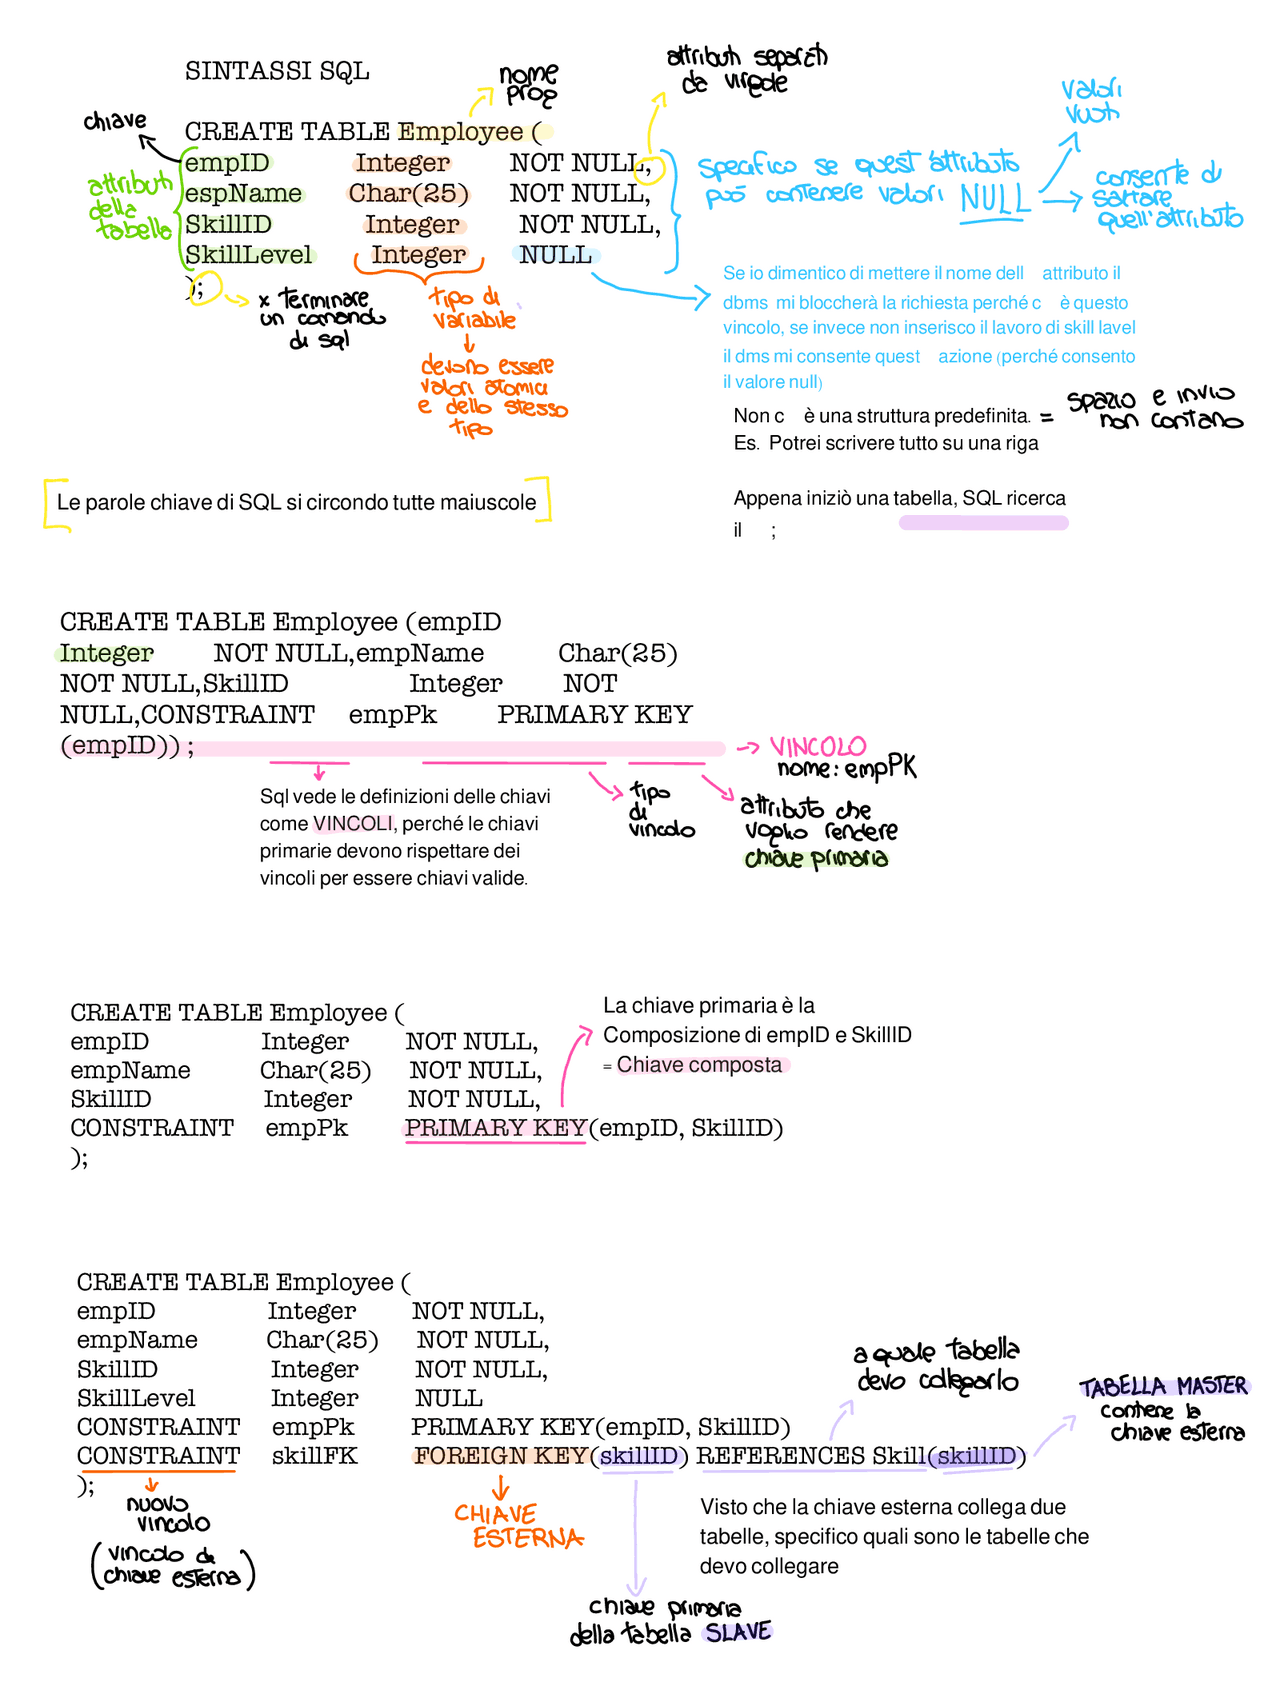 SINTASSI SQL
nome
prog
attributi separati
da virgole
valori
vuoti
chiave
CREATE TABLE Employee (
empID Integer NOT NULL,
espName Char(25) NOT NULL,
SkillID Integer NOT NULL,
SkillLevel Integer NULL
);
attributi
della
tabella
specifico se quest'attributo
può contenere valori NULL
consente di
saltare
quell'attributo
x terminare
un comando
di sql
tipo di
variabile
devono essere
valori atomici
e dello stesso
tipo
Se io dimentico di mettere il nome dell attributo il
dbms mi bloccherà la richiesta perché c è questo
vincolo, se invece non inserisco il lavoro di skill lavel
il dms mi consente quest azione (perché consento
il valore null)
Non c è una struttura predefinita. = spazio e invio
non contano
Es. Potrei scrivere tutto su una riga
Le parole chiave di SQL si circondo tutte maiuscole
Appena iniziò una tabella, SQL ricerca
il ;
CREATE TABLE Employee (empID
Integer NOT NULL,empName Char(25)
NOT NULL,SkillID Integer NOT
NULL,CONSTRAINT empPk PRIMARY KEY
(empID)) ;
VINCOLO
nome: empPK
Sql vede le definizioni delle chiavi
come VINCOLI, perché le chiavi
primarie devono rispettare dei
vincoli per essere chiavi valide.
tipo
di
vincolo
attributo che
voglio rendere
chiave primaria
CREATE TABLE Employee (
empID Integer NOT NULL,
empName Char(25) NOT NULL,
SkillID Integer NOT NULL,
CONSTRAINT empPk PRIMARY KEY(empID, SkillID)
);
La chiave primaria è la
Composizione di empID e SkillID
= Chiave composta
CREATE TABLE Employee (
empID Integer NOT NULL,
empName Char(25) NOT NULL,
SkillID Integer NOT NULL,
SkillLevel Integer NULL
CONSTRAINT empPk PRIMARY KEY(empID, SkillID)
CONSTRAINT skillFK FOREIGN KEY(skillID) REFERENCES Skill(skillID)
);
a quale tabella
devo collegarlo
TABELLA MASTER
contiene la
chiave esterna
nuovo
vincolo
(vincolo di
chiave esterna)
CHIAVE
ESTERNA
Visto che la chiave esterna collega due
tabelle, specifico quali sono le tabelle che
devo collegare
chiave primaria
della tabella SLAVE